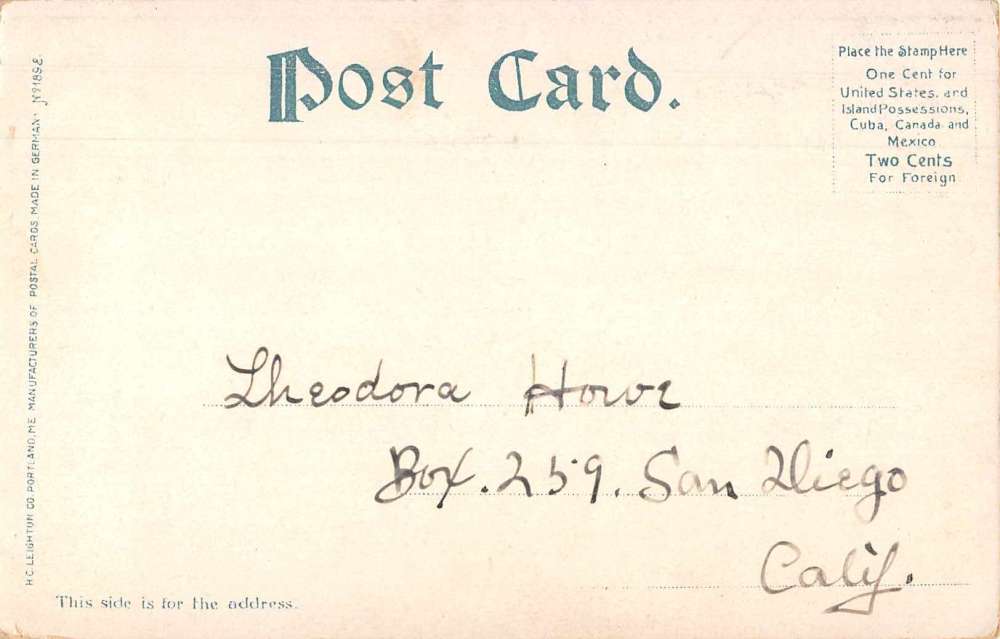 Post Card.
Place the Stamp Here
One Cent for
United States, and
Island Possessions,
Cuba, Canada and
Mexico
Two Cents
For Foreign
H.C. LEIGHTON CO. PORTLAND, ME. MANUFACTURERS OF POSTAL CARDS MADE IN GERMANY
Theodora Howe
Box. 259. San Diego
Calif.
This side is for the address.